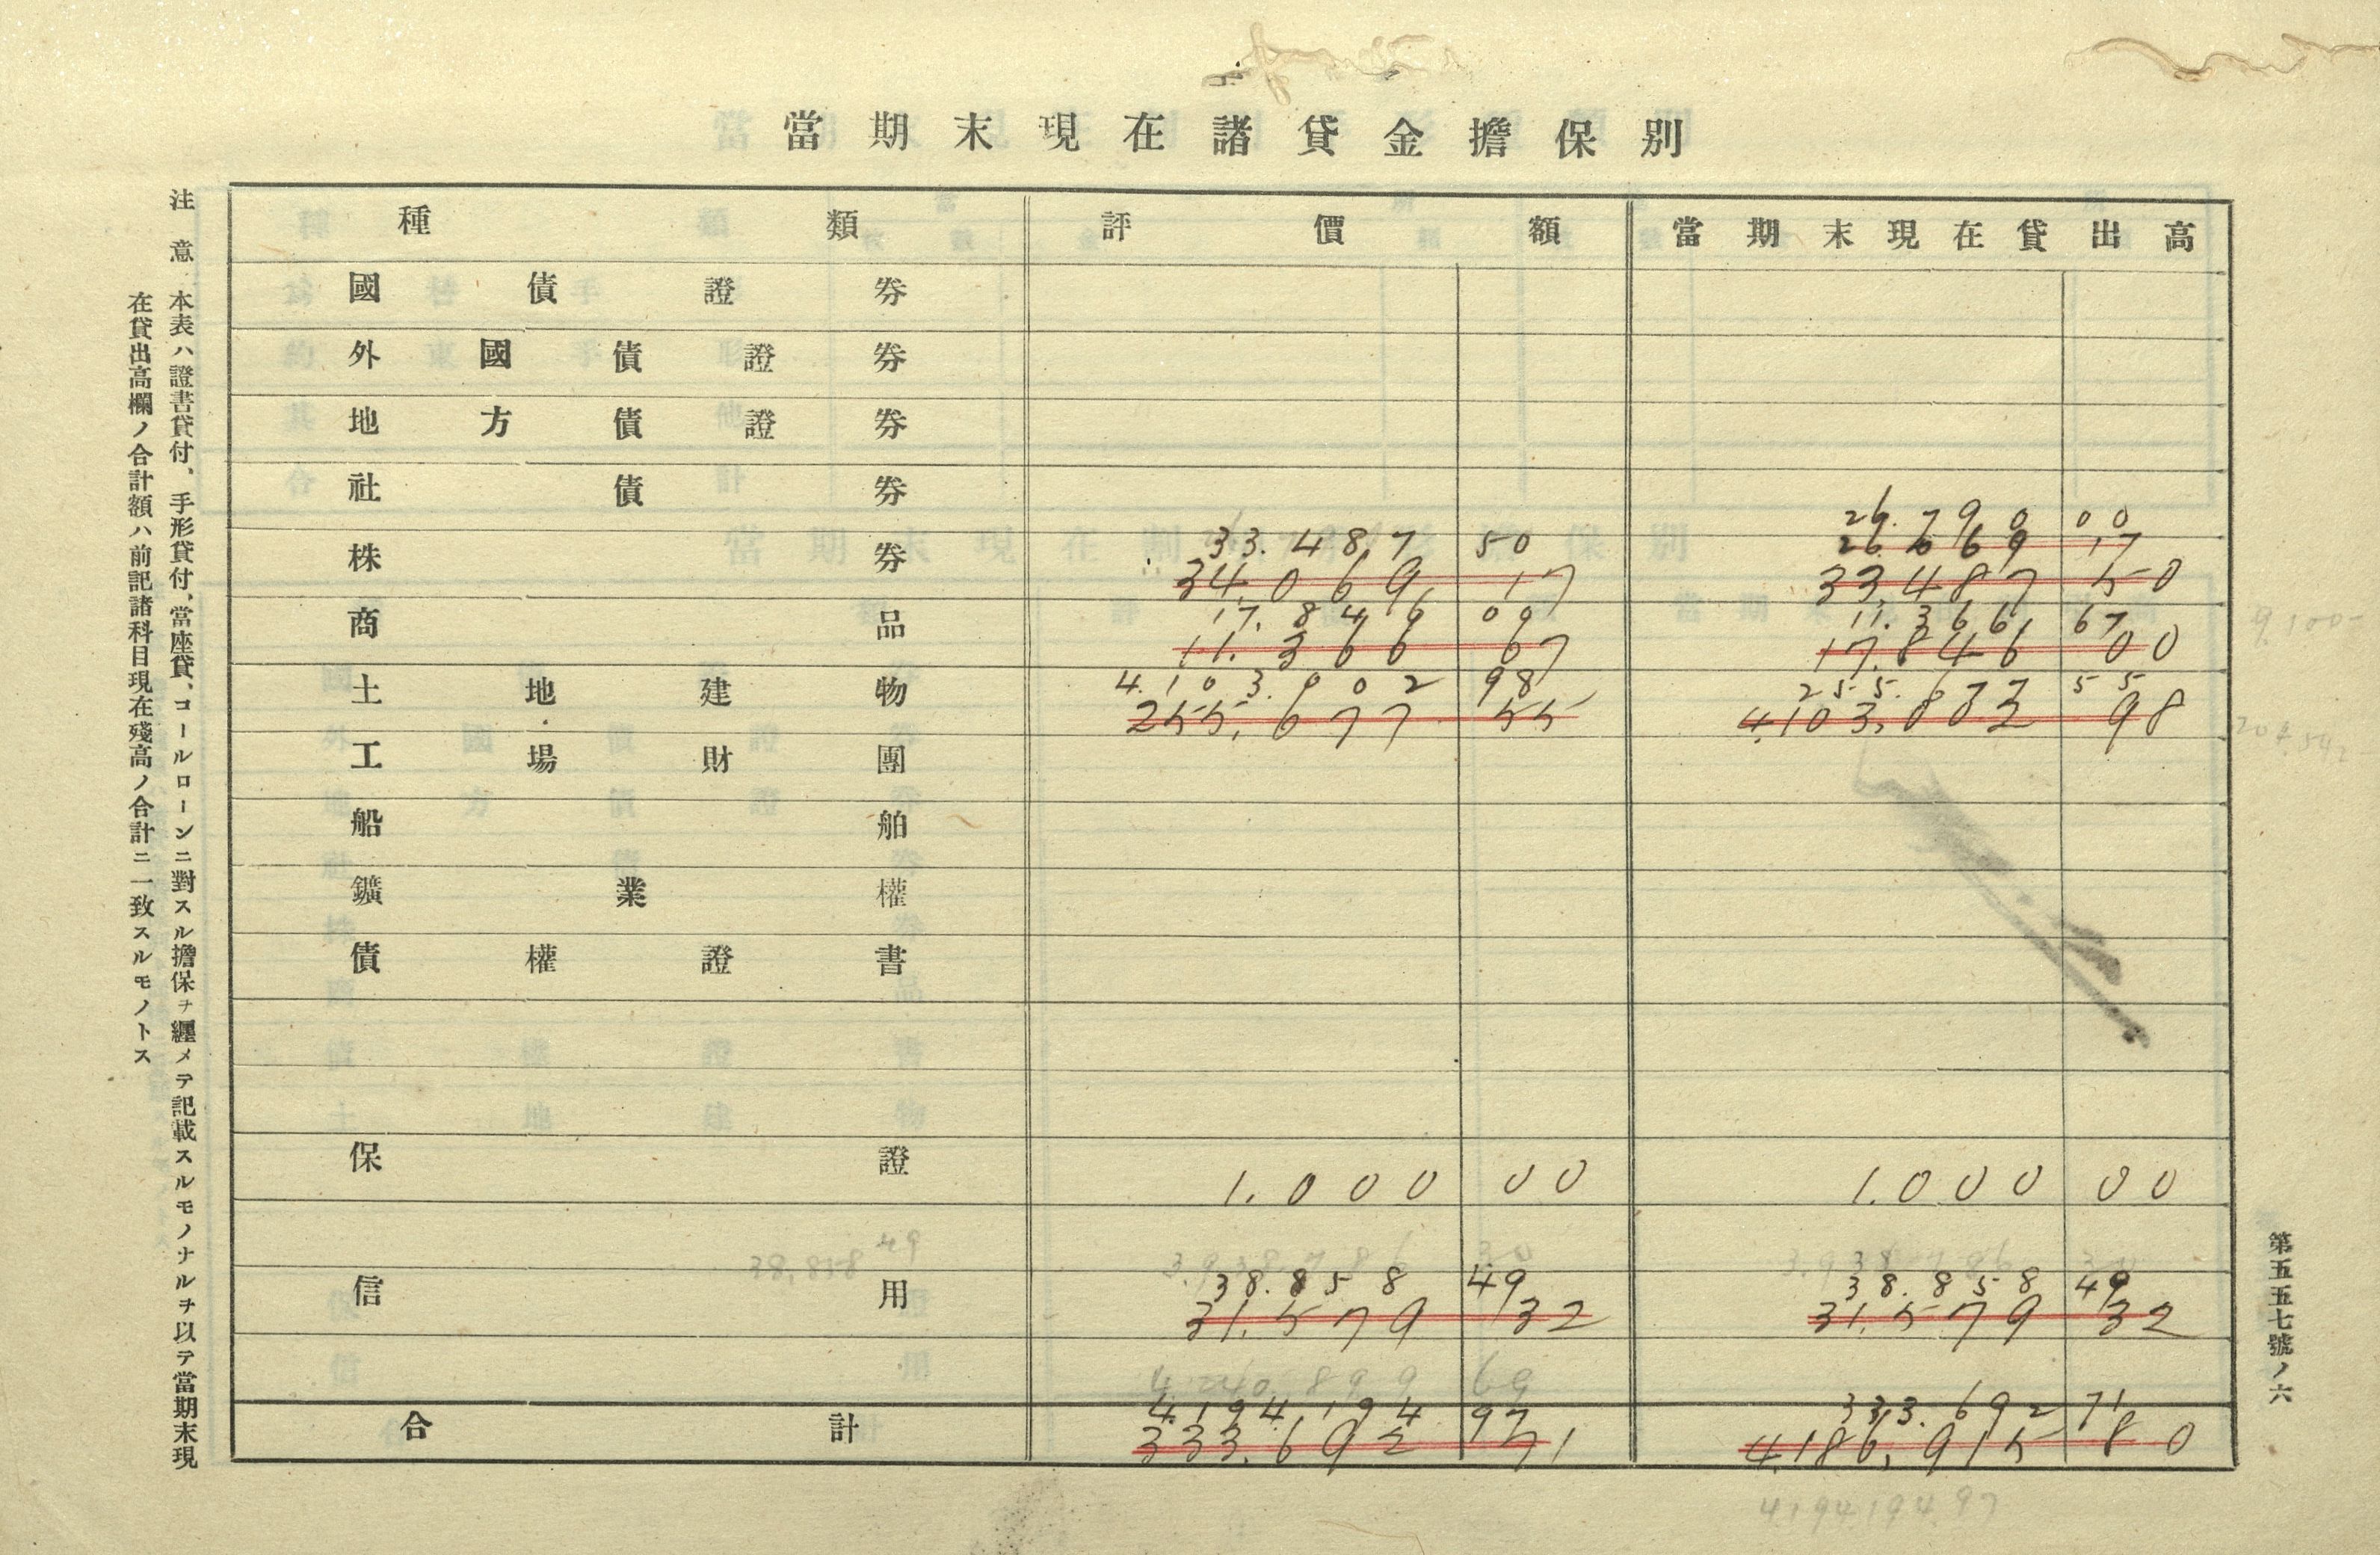 當期末現在諸貸金擔保別
種類 評價額 當期末現在貸出高
國債證券
外國債證券
地方債證券
社債券
26.790 00
33.487 50
株券 34.069 17 33,487 50
17.846 00 11.366 67
商品 11.366 67 17.846 00
4.103.002 98 255.677 55
土地建物 255.677 55 4,103,002 98
工場財團
船舶
鑛業權
債權證書
保證 1.000 00 1.000 00
38,858 49
38.858 49 38.858 49
信用 31.579 32 31.579 32
4.194.194 97 333.692 71
合計 333.692 71 4,186,915 80
4194194.97
注意 本表ハ證書貸付、手形貸付、當座貸、コールローンニ對スル擔保ヲ纒メテ記載スルモノナルヲ以テ當期末現
在貸出高欄ノ合計額ハ前記諸科目現在殘高ノ合計ニ一致スルモノトス
第五五七號ノ六